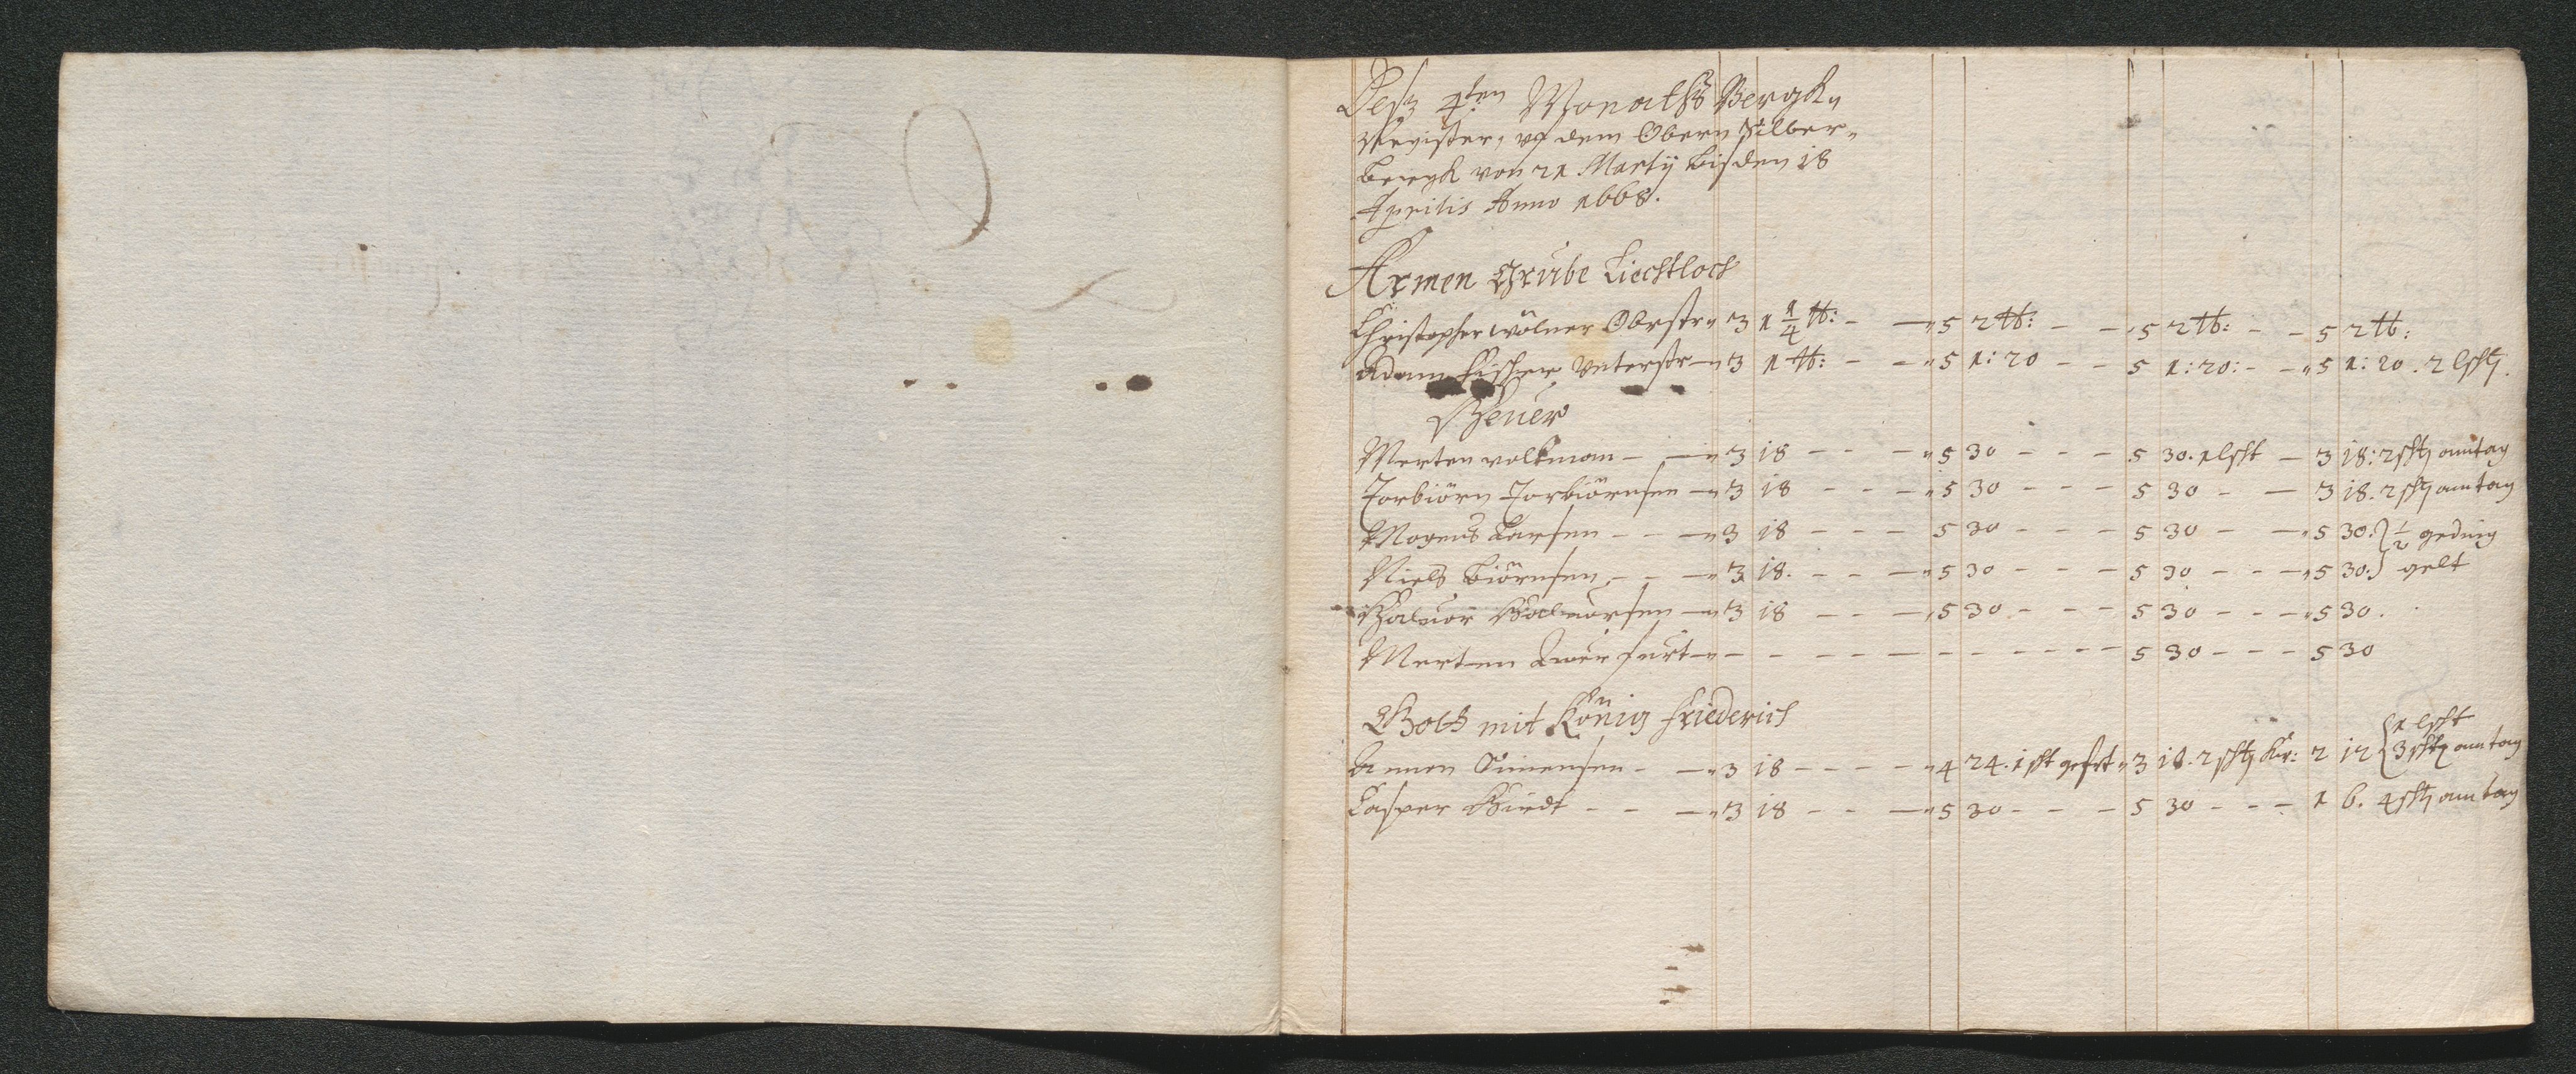 Desz 4ten Monaths Bergk„
Register, vf dem Obern Silber„
Bergk von 21 Martÿ bis den 18
Aprilis Anno 1668.
Armen Grube Liechtloch
Christopher wölner Obrstr„ 3 1 1/4 ℔: – — „ 5 2 ℔: – – „ 5 2 ℔: – – 5 2 ℔:
Adam Fischer Vnterstr — „ 3 1 ℔: – — „ 5 1: 20 – – 5 1: 20: – – „ 5 1: 20. 2 lscht
Heuer
Merten volkman – — „ 3 18 – – – „ 5 30 – – – 5 30. 1 lscht – 3 18: 2 scht am tag
Torbiörn Torbiörnsen — „ 3 18 – – – „ 5 30 – – – 5 30 – — 3 18. 2 scht am tag
Mogens Larsen – – — „ 3 18 – – – 5 30 – – – 5 30 – — „ 5 30. } 1/2 geding
Niels Biörnsen – – — „ 3 18. – – — „ 5 30 – – – 5 30 – – — „ 5 30. } gelt
Haluor Haluorsen — „ 3 18 – – — „ 5 30 – – – 5 30 – – — „ 5 30.
Merten Querfurt — „ – – – – – – – – – – – 5 30 – – – 5 30
Gott mit König Friederich
Amon Simensen – — „ 3 18 – – – – „ 4 24. 1 scht gefrt „ 3 18. 2 scht Kr: 2 12 { 1 lscht
3 scht am tag
Casper Hindt – – — „ 3 18 – – — „ 5 30 – – – 5 30 – – – 1 6. 4 scht am tag